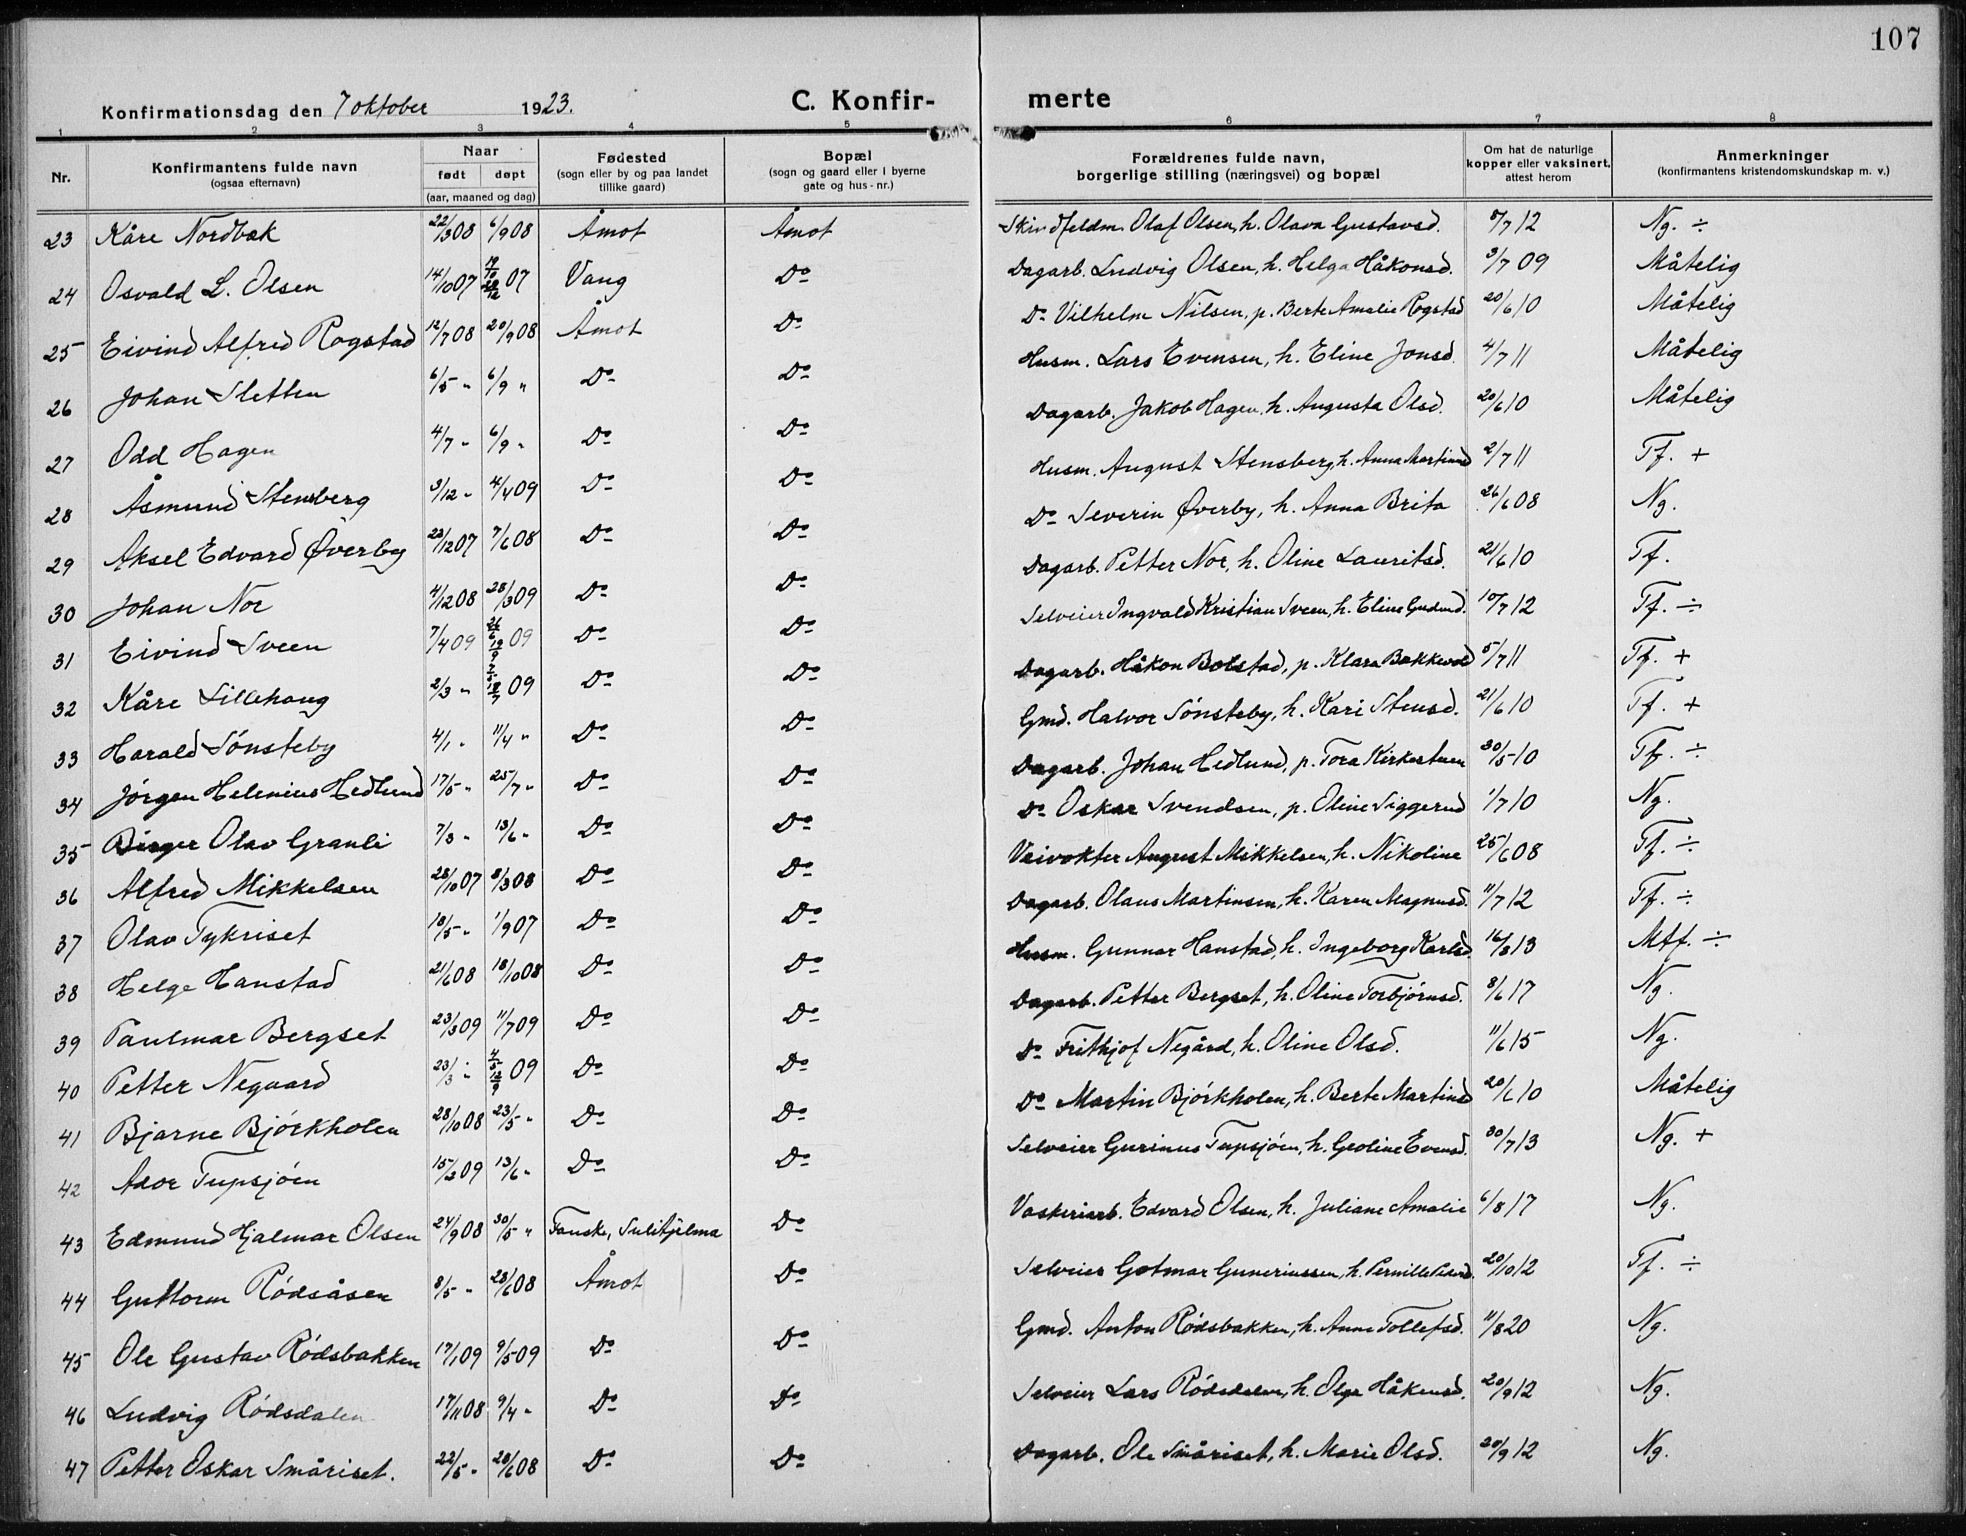 107
Konfirmationsdag den 7 oktober 1923. C. Konfir- merte
1 2 3 4 5 6 7 8
Nr. | Konfirmantens fulde navn (ogsaa efternavn) | Naar født døpt (aar, maaned og dag) | Fødested (sogn eller by og paa landet tillike gaard) | Bopæl (sogn og gaard eller i byerne gate og hus-nr.) | Forældrenes fulde navn, borgerlige stilling (næringsvei) og bopæl | Om hat de naturlige kopper eller vaksinert, attest herom | Anmerkninger (konfirmantens kristendomskundskap m. v.)
23 Kåre Nordbæk 22/3 08 6/9 08 Åmot Åmot Skindfeldm. Olaf Olsen, h. Olava Gustavsd. 5/7 12 Ng. ÷
24 Osvald L. Olsen 14/10 07 19/10 28/12 07 Vang Do Dagarb. Ludvig Olsen, h. Helga Håkonsd. 3/7 09 Måtelig
25 Eivind Alfred Rogstad 12/7 08 20/9 08 Åmot Do Do Vilhelm Nilsen, p. Berte Amalie Rogstad 20/6 10 Måtelig
26 Johan Sletten 6/5 " 6/9 " Do Do Husm. Lars Evensen, h. Eline Jonsd. 4/7 11 Måtelig
27 Odd Hagen 4/7 " 6/9 " Do Do Dagarb. Jakob Hagen, h. Augusta Olsd. 20/6 10 Måtelig
28 Åsmund Stensberg 3/12 " 4/4 09 Do Do Husm. August Stensberg, h. Anna Martinsd 2/7 11 Tf. +
29 Aksel Edvard Øverby 23/12 07 7/6 08 Do Do Do Severin Øverby, h. Anna Brita 26/6 08 Ng.
30 Johan Nor 4/12 08 28/3 09 Do Do Dagarb. Petter Nor, h. Oline Lauritsd. 21/6 10 Tf.
31 Eivind Sveen 7/4 09 26/6 19/9 09 Do Do Selveier Ingvald Kristian Sveen, h. Eline Gudmd. 10/7 12 Tf. ÷
32 Kåre Lillehaug 2/3 " 2/5 18/7 09 Do Do Dagarb. Håkon Bolstad, p. Klara Bakkevold 5/7 11 Tf. +
33 Harald Sønsteby 4/1 " 11/4 " Do Do Gmd. Halvor Sønsteby, h. Kari Stensd. 21/6 10 Tf. +
34 Jørgen Helenius Hedlund 17/5 " 25/7 " Do Do Dagarb. Johan Hedlund, p. Tora Kirkestuen 30/5 10 Tf. ÷
35 Birger Olav Granli 7/3 " 13/6 " Do Do Do Oskar Svendsen, p. Oline Siggerud 1/7 10 Ng.
36 Alfred Mikkelsen 28/10 07 8/3 08 Do Do Veivokter August Mikkelsen, h. Nikoline 25/6 08 Tf. ÷
37 Olav Tykriset 18/5 " 1/9 07 Do Do Dagarb. Olaus Martinsen, h. Karen Magnusd. 11/7 12 Tf. ÷
38 Helge Hanstad 21/6 08 18/10 08 Do Do Husm. Gunnar Hanstad, h. Ingeborg Karlsd. 16/8 13 Mtf. ÷
39 Paulmar Bergset 23/3 09 11/7 09 Do Do Dagarb. Petter Bergset, h. Oline Torbjørnsd. 8/6 17 Ng.
40 Petter Negaard 23/3 " 4/5 12/9 09 Do Do Do Frithjof Negård, h. Oline Olsd. 11/6 15 Ng.
41 Bjarne Bjørkholen 28/10 08 23/5 " Do Do Do Martin Bjørkholen, h. Berte Martinsd 20/6 10 Måtelig
42 Ador Tupsjøen 15/2 09 13/6 " Do Do Selveier Gurinus Tupsjøen, h. Groline Evensd. 30/7 13 Ng. +
43 Edmund Hjalmar Olsen 24/9 08 30/5 " Fauske, Sulitjelma Do Vaskeriarb. Edvard Olsen, h. Juliane Amalie 6/8 17 Ng.
44 Guttorm Rødsåsen 8/5 " 28/6 08 Åmot Do Selveier Gotmar Guneriussen, h. Pernille Pedersd. 20/10 12 Tf. ÷
45 Ole Gustav Rødsbakken 17/1 09 9/5 09 Do Do Gmd. Anton Rødsbakken, h. Anne Tollefsd. 11/8 20 Ng.
46 Ludvig Rødsdalen 17/11 08 9/4 " Do Do Selveier Lars Rødsdalen, h. Olga Håkensd. 20/9 12 Ng.
47 Petter Oskar Småriset. 22/5 " 28/6 08 Do Do Dagarb. Ole Småriset, h. Marie Olsd. 20/9 12 Ng.